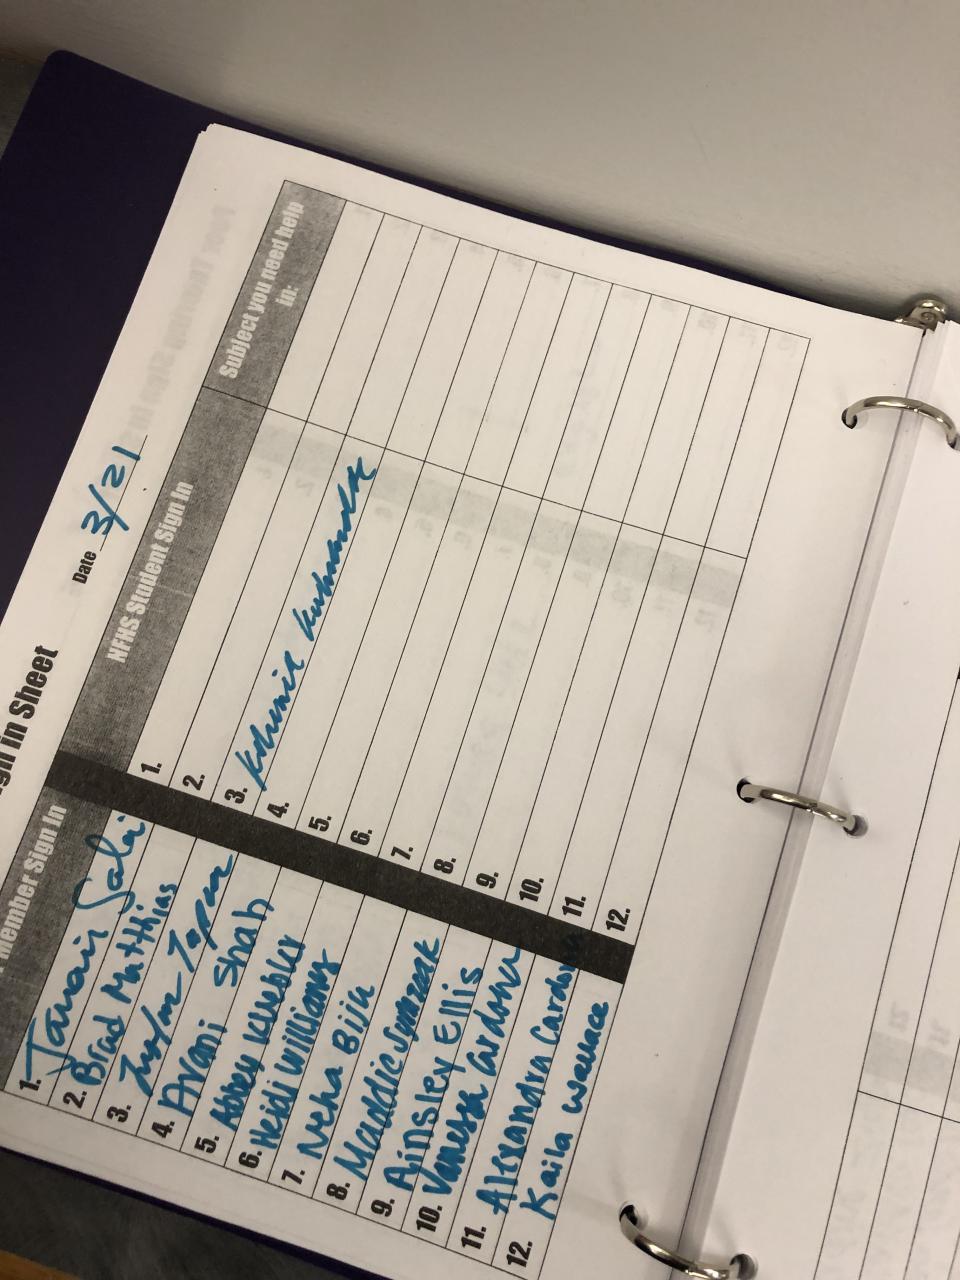 gn in Sheet
Date 3/21
Member Sign In
NFHS Student Sign In
Subject you need help in:
1. Salai
2. Brad Matthias
3.
4. Avani Shah
5. Abbey Kuebler
6. Heidi Williams
7. Neha Biju
8. Maddie
9. Ainsley Ellis
10. Vanessa Cardona
11. Alexandra Cardona
12. Kaila Wallace
1.
2.
3.
4.
5.
6.
7.
8.
9.
10.
11.
12.